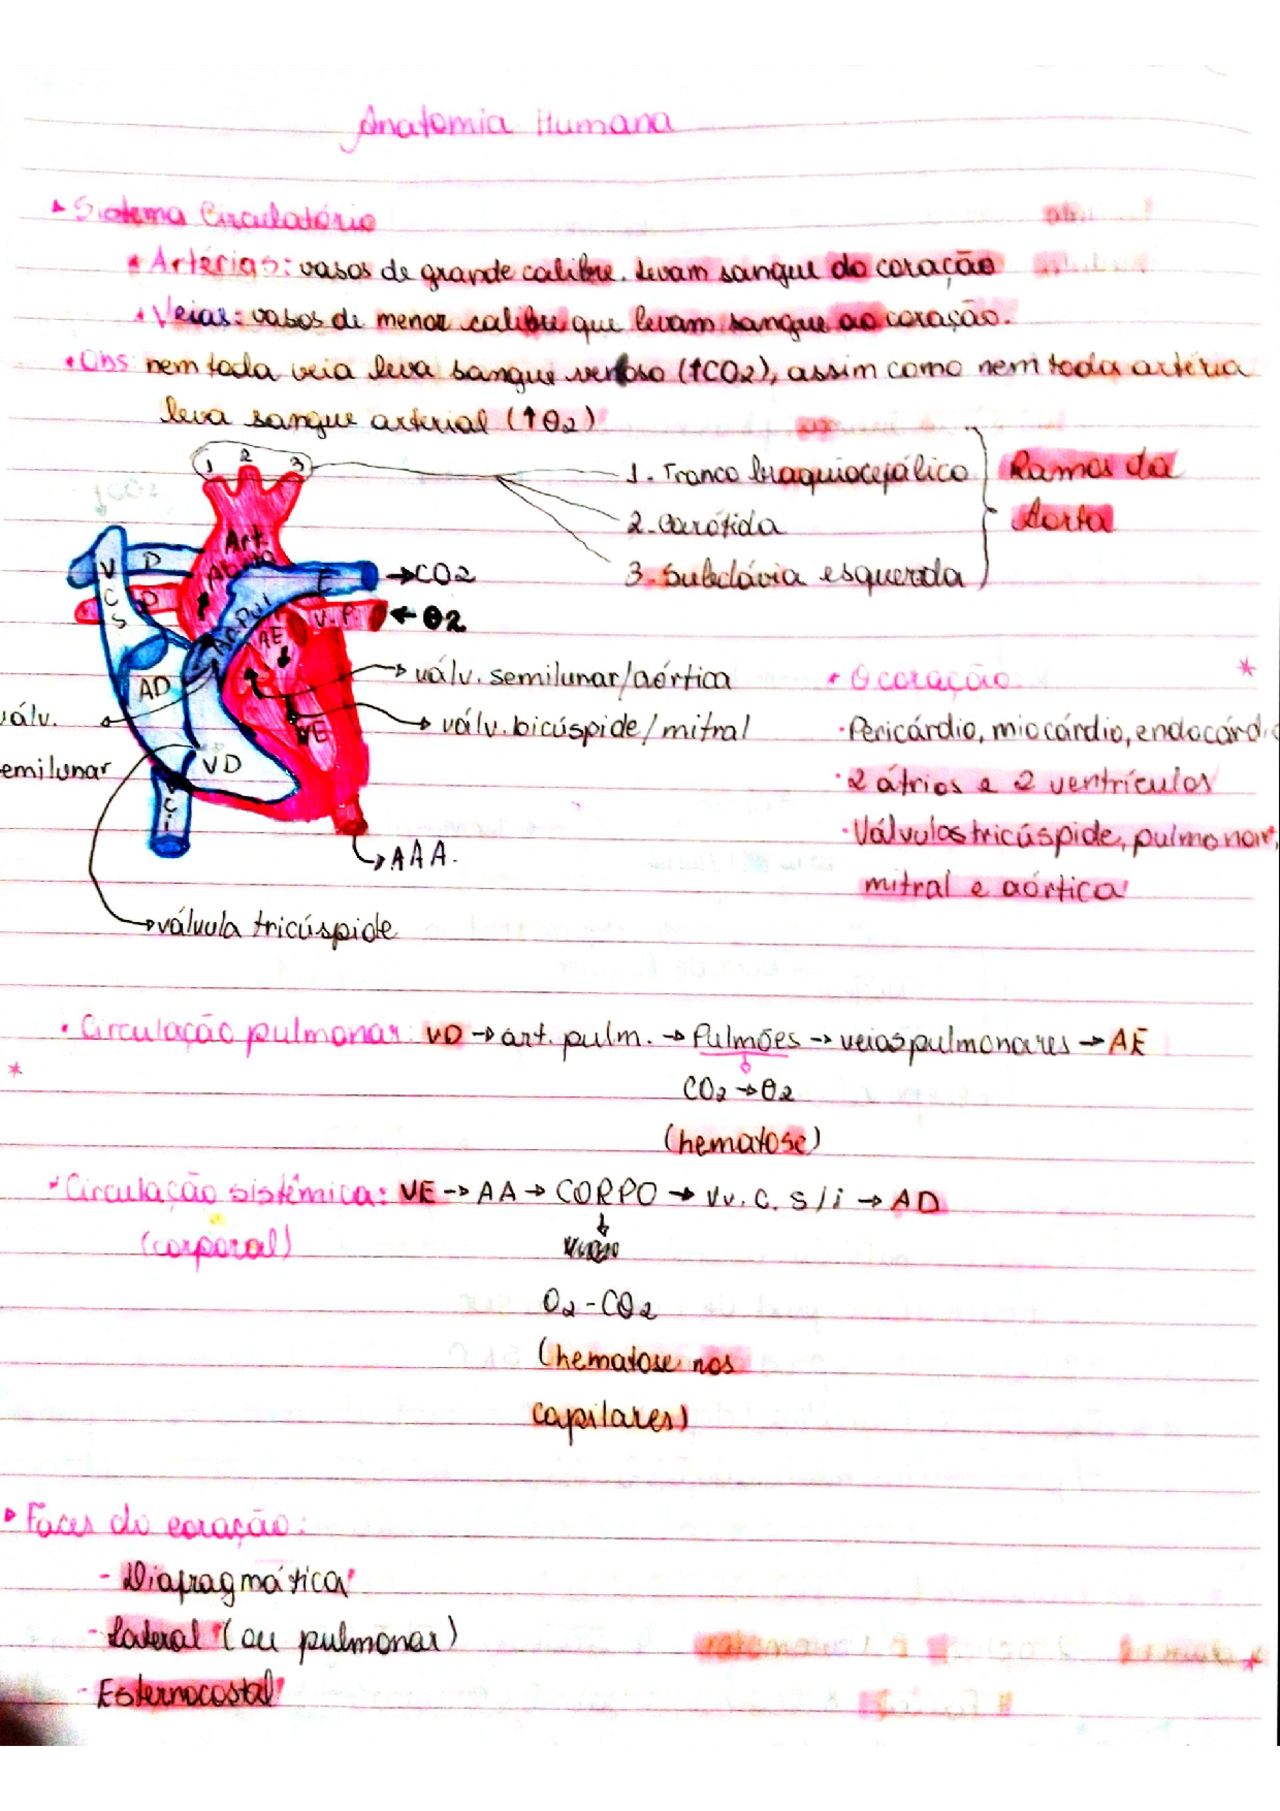 Anatomia Humana
Sistema Circulatório
Artérias: vasos de grande calibre. Levam sangue do coração
Veias: vasos de menor calibre que levam sangue ao coração.
Obs: nem toda veia leva sangue venoso (↑CO2), assim como nem toda artéria
leva sangue arterial (↑O2)
1 2 3
1. Tronco braquiocefálico
2. Carótida
3. Subclávia esquerda
Ramos da
Aorta
Art.
V C S
D
D
E
→CO2
Art. Pul
V. P.
←O2
AE
AD
VE
VD
V C i
válv. semilunar/aórtica
válv. bicúspide/mitral
válv.
semilunar
AAA.
válvula tricúspide
O coração
Pericárdio, miocárdio, endocárdio
2 átrios e 2 ventrículos
Válvulas tricúspide, pulmonar,
mitral e aórtica
Circulação pulmonar: VD → art. pulm. → Pulmões → veias pulmonares → AE
CO2 → O2
(hematose)
Circulação sistêmica: VE → AA → CORPO → Vv. C. S/i → AD
(corporal)
O2 - CO2
(hematose nos
capilares)
Faces do coração:
- Diafragmática
- Lateral (ou pulmonar)
- Esternocostal